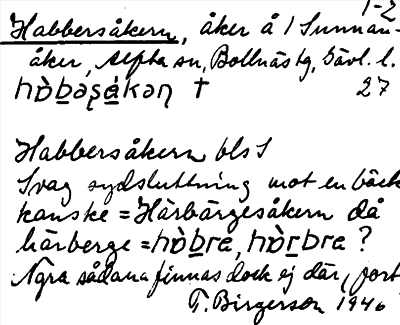 1-2
Habbersåkern, åker å 1 Sunnan-
åker, Alfta sn, Bollnäs tg, Gävl. l.
hòbəʂákəɳ † 27
Habbersåkern bls 1
Svag sydsluttning mot en bäck
kanske = Härbärgesåkern då
härberge = hòbrɐ, hòrbrɐ ?
Några sådana finnas dock ej där, fort
T. Birgerson 1946